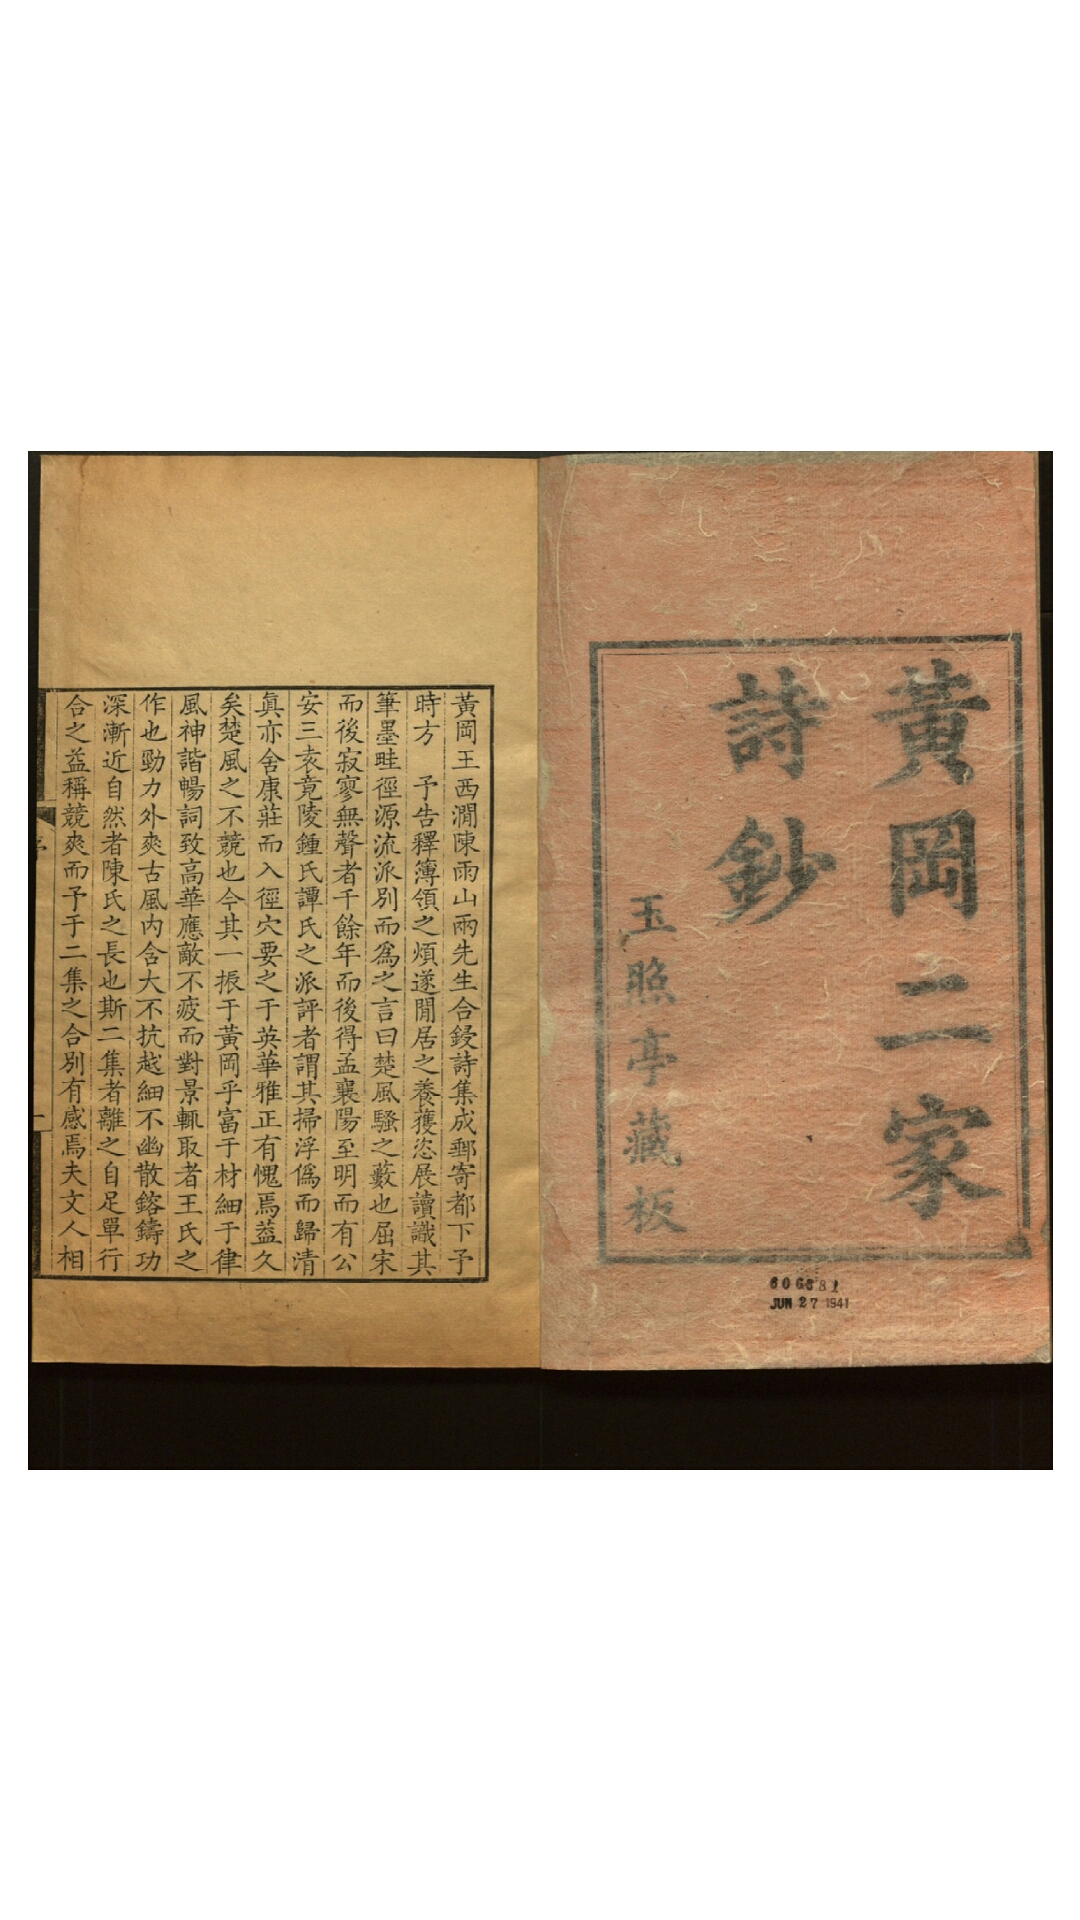 黃岡二家
詩鈔
玉照亭藏板
606681
JUN 27 1941
黃岡王西澗陳雨山兩先生合鋟詩集成郵寄都下予
時方 予告釋簿領之煩遂閒居之養獲恣展讀識其
筆墨畦徑源流派別而爲之言曰楚風騷之藪也屈宋
而後寂寥無聲者千餘年而後得孟襄陽至明而有公
安三袁竟陵鍾氏譚氏之派評者謂其掃浮僞而歸清
眞亦舍康莊而入徑穴要之于英華雅正有愧焉葢久
矣楚風之不競也今其一振于黃岡乎富于材細于律
風神諧暢詞致高華應敵不疲而對景輒取者王氏之
作也勁力外爽古風内含大不抗越細不幽散鎔鑄功
深漸近自然者陳氏之長也斯二集者離之自足單行
合之益稱競爽而予于二集之合別有感焉夫文人相
序
一